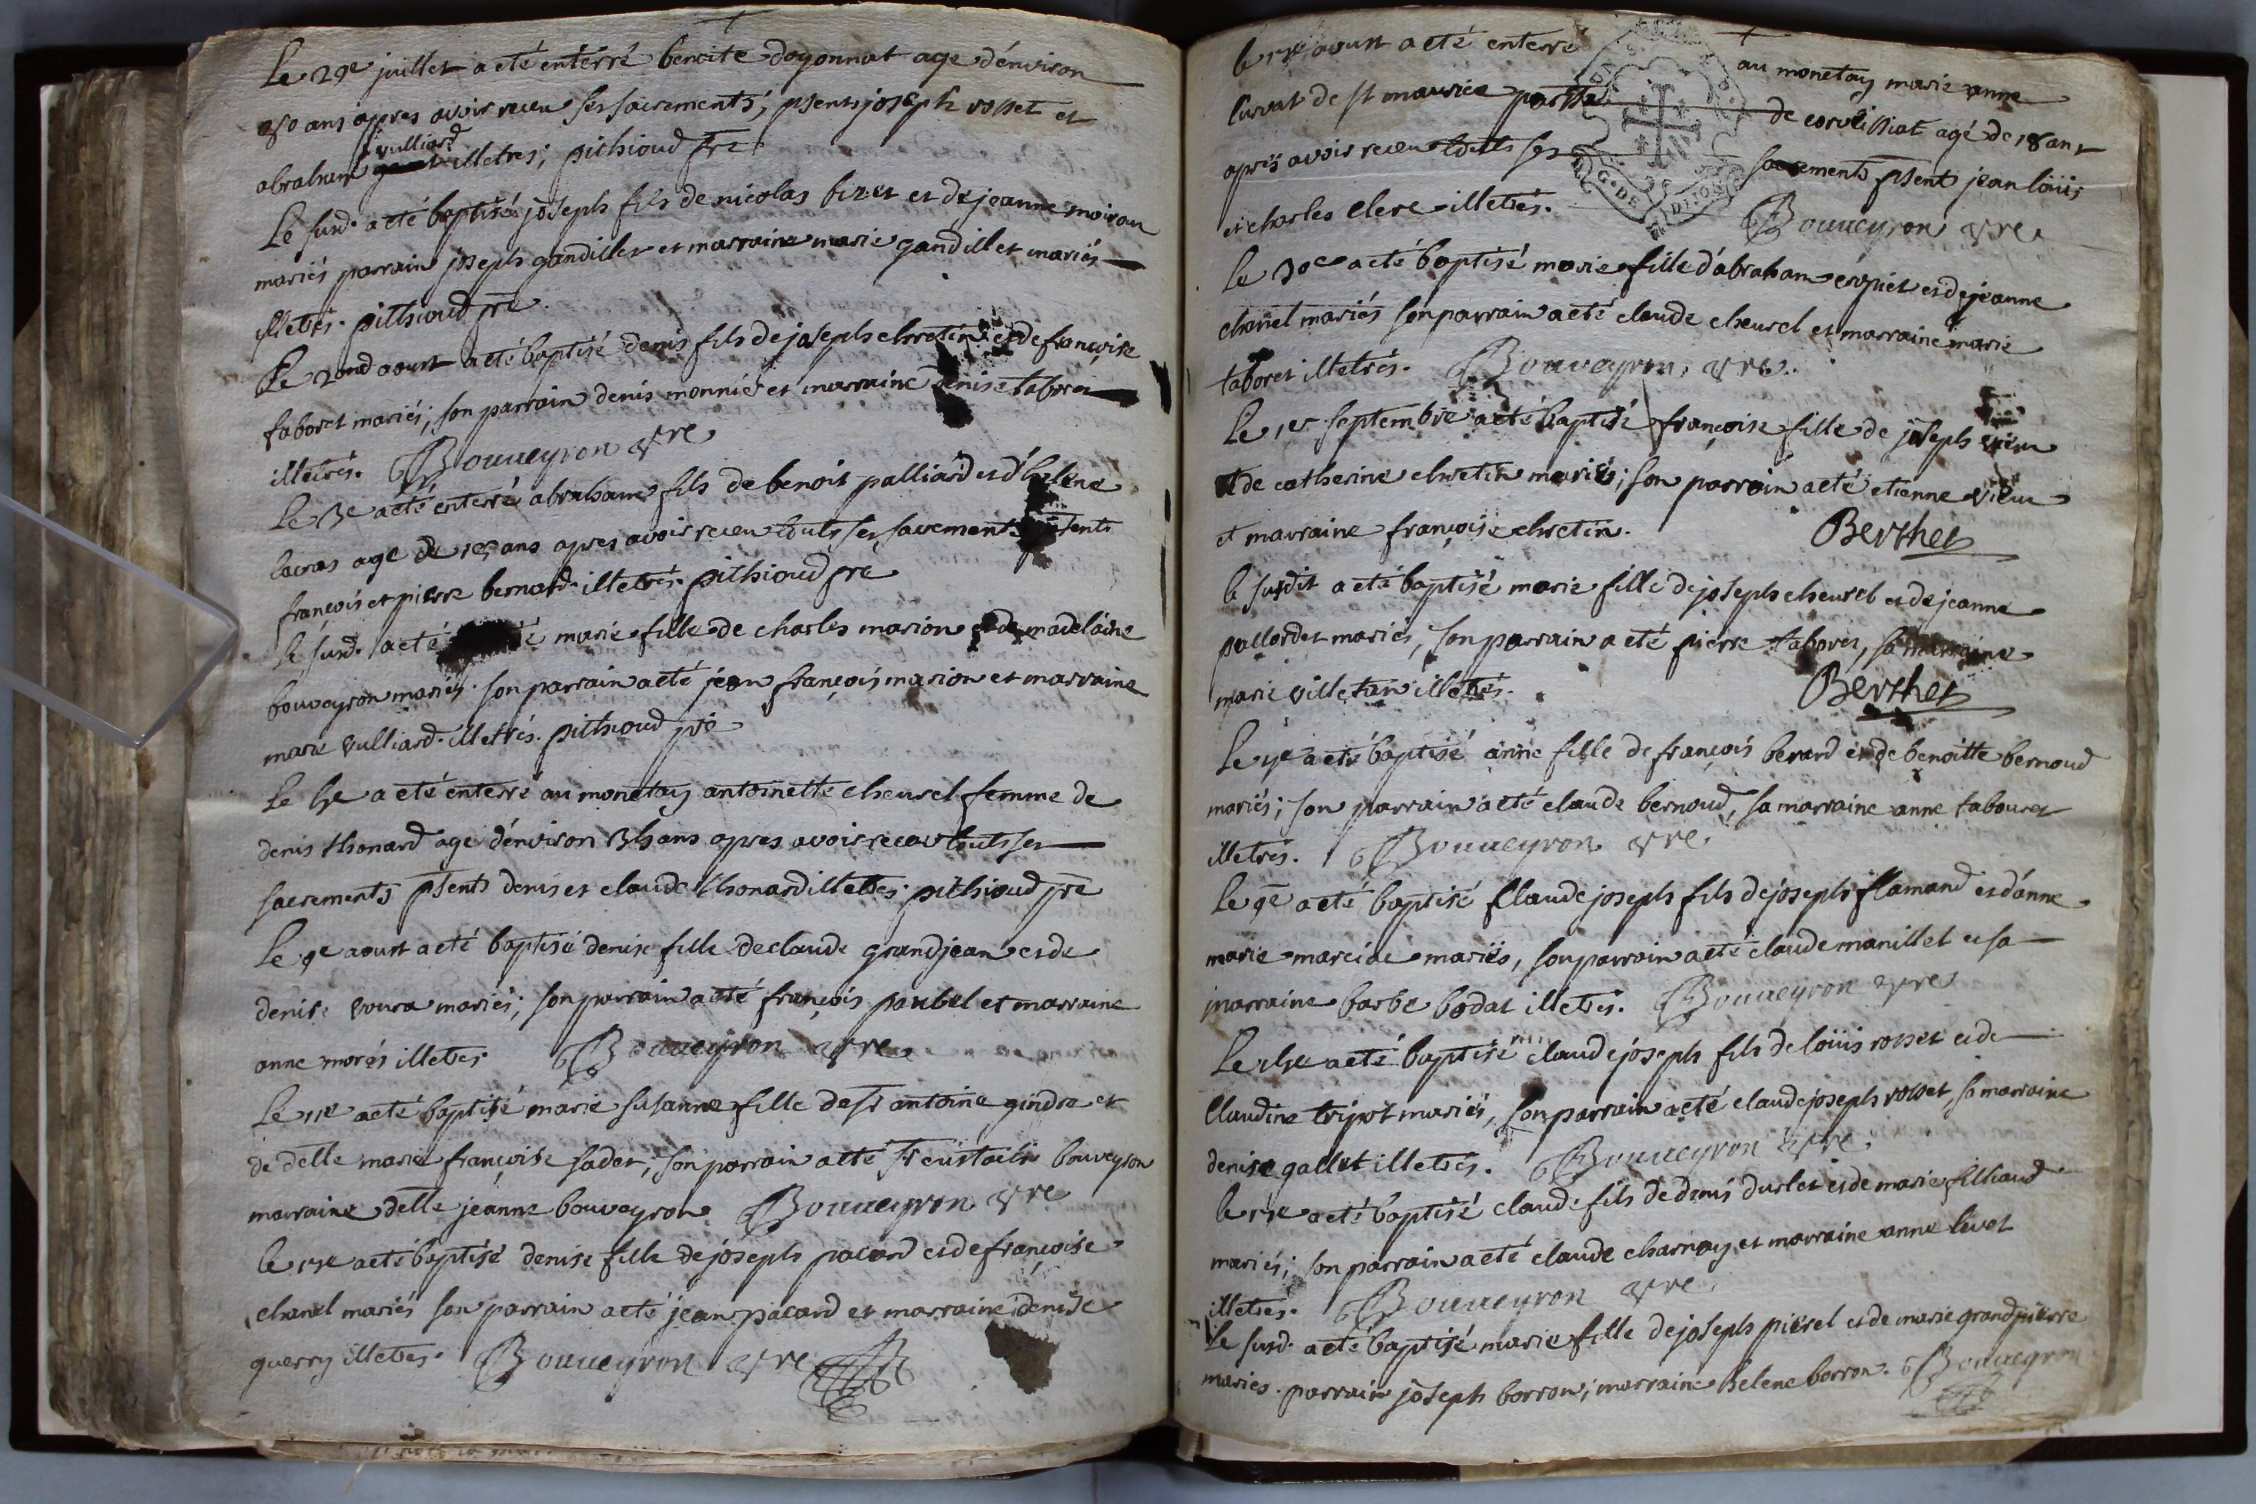 Le 29e juillet a eté enterré benoite doyonnat age d'environ
50 ans apres avoir receu ses sacrements, psents joseph rosset et
vulliard
abraham illetres; pithioud pre
Le susd. a eté baptisé joseph fils de nicolas bizet et de jeanne moiroux
mariés parrain joseph gandillet et marraine marie gandillet mariés
illetrés. pithioud pre
Le 2ond aoust a eté baptisé denis fils de joseph chretin et de françoise
taboret mariés; son parrain denis monnié et marraine denise taboret
illetrés. Bouveyron vre
Le 3e a eté enterré abraham fils de benoit palliard et d'helene
lacras age de ans apres avoir receu touts ses sacements psents
françois et pierre bernard illetrés. pithioud pre
le susd. a eté marie fille de charles marion et de madelaine
bouveyron mariés. son parrain a eté jean françois marion et marraine
marie vulliard. illetrés. pithioud pre
Le 4e a eté enterré au monetay antoinette cheurel femme de
denis thonard age d'environ 34 ans apres avoir receu touts ses
sacrements psents denis et claude thonard illetres. pithioud pre
Le 9e aoust a eté baptisé denise fille de claude grandjean et de
denise voura mariés; son parrain a eté françois paubel et marraine
anne morés illetres. Bouveyron vre
Le 11e a eté baptisé marie susanne fille de sr antoine gindre et
de delle marie françoise sader; son parrain a eté sr eustache bouveyron
marraine delle jeanne bouveyron. Bouveyron vre
le 15e a eté baptisé denise fille de joseph pacard et de françoise
chanel mariés son parrain a eté jean pacard et marraine denise
querry illetres. Bouveyron vre
le aoust a eté enterré au monetay marie anne
curvat de st maurice de corveissiat agé de 18 ans
aprés avoir receu touts ses sacements psents jean loüis
et charles clerc illetrés. Bouveyron vre
Le 30e a eté baptisé marie fille d'abraham et de jeanne
chanel mariés son parrain a eté claude cheurel et marraine marie
taboret illetrés. Bouveyron vre.
Le 1er septembre a eté baptisé françoise fille de joseph vieux
et de catherine chretin mariés; son parrain a eté etienne vieux
et marraine françoise chretin. Berthet
le susdit a eté baptisé marie fille de joseph cheurel et de jeanne
pallordet mariés, son parrain a eté pierre taboret, sa marraine
marie villetan illetrés. Berthet
Le a eté baptisé anne fille de françois berard et de benoitte bernoud
mariés; son parrain a eté claude bernoud, sa marraine anne tabouret
illetrés. Bouveyron vre.
Le 9e a eté baptisé claude joseph fils de joseph flamand et d'anne
marie marciac mariés, son parrain a eté claude manillet et sa
marraine barbe bodat illetrés. Bouveyron vre
Le 14e a eté baptisé claude joseph fils de loüis rosset et de
claudine tripot mariés, son parrain a eté claude joseph rosset, sa marraine
denise gallet illetrés. Bouveyron vre.
le a eté baptisé claude fils de denis durlet et de marie filliaud
mariés; son parrain a eté claude charnay et marraine anne livet
illetrés. Bouveyron vre.
Le susd. a eté baptisé marie fille de joseph pierrel et de marie grandpierre
mariés. parrain joseph borron; marraine helene borron. Bouveyron